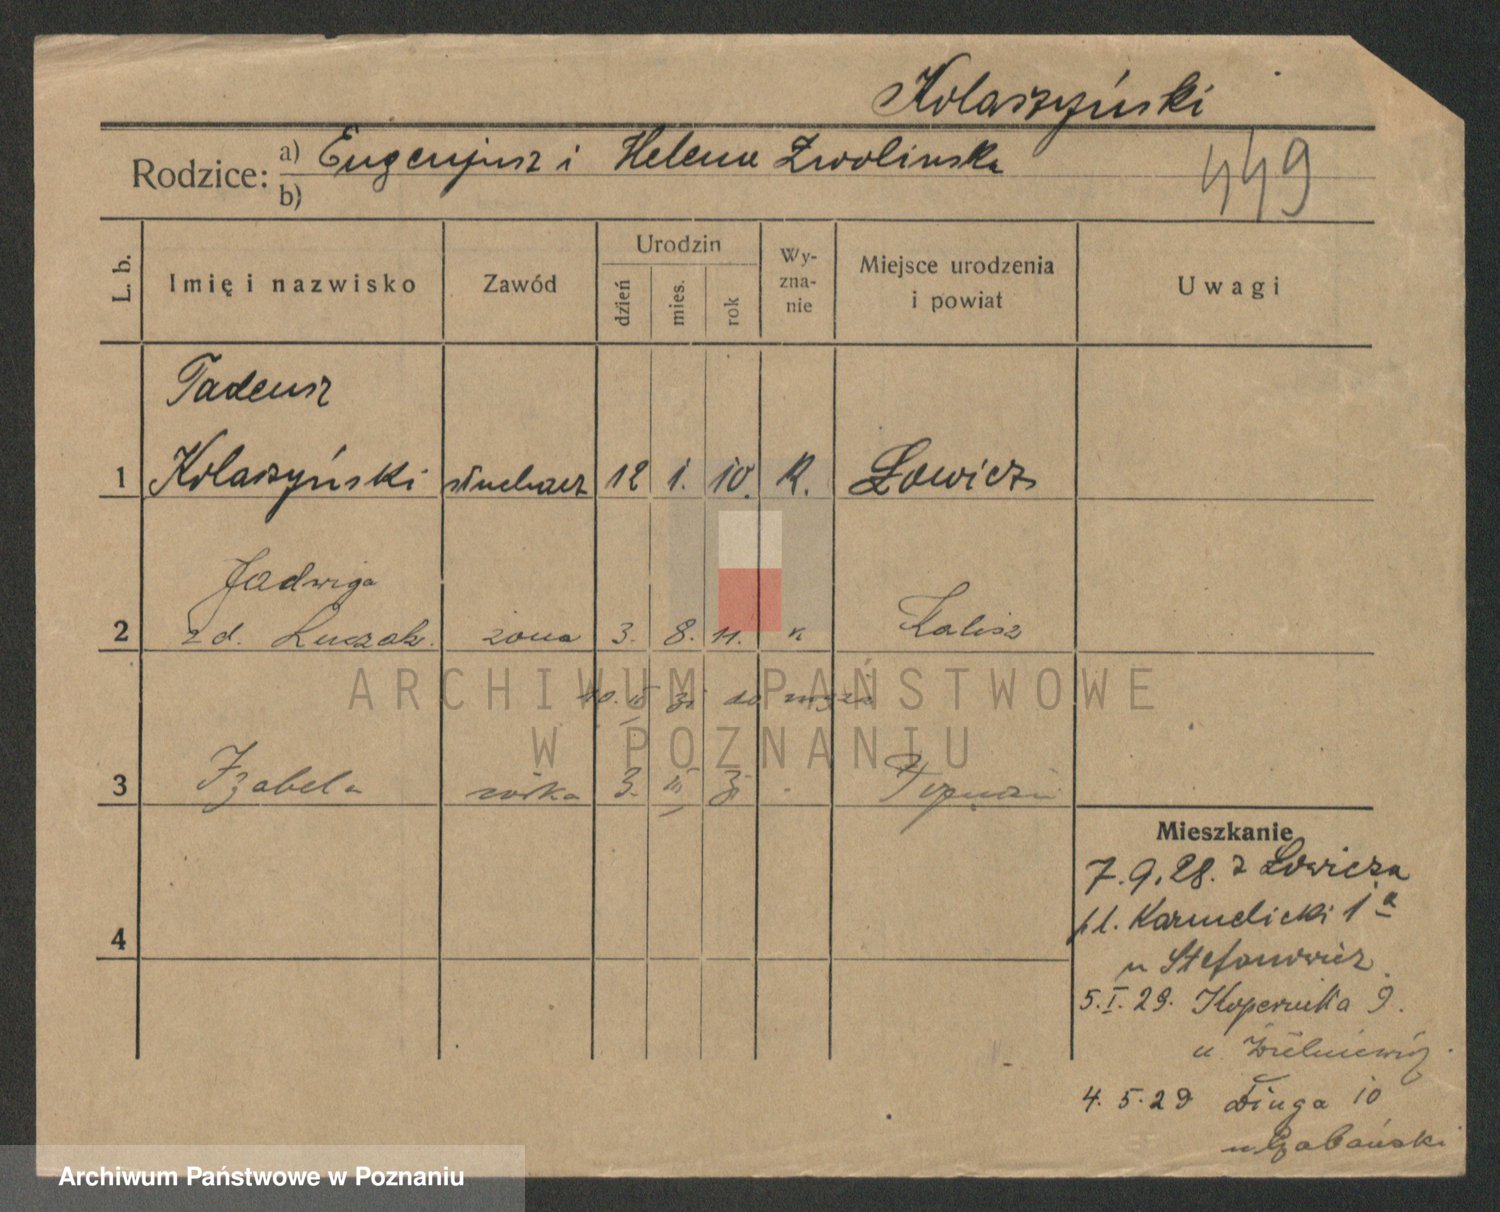 Kolaszyński
Rodzice: a) Eugenjusz i Helena Zwolinska
b)
449
L. b. Imię i nazwisko Zawód Urodzin dzień mies. rok Wy-zna-nie Miejsce urodzenia i powiat Uwagi
Tadeusz
1 Kolaszyński słuchacz 12 1. 10. K. Łowicz
Jadwiga
2 z d. Luczak. żona 3. 8. 11. k Kalisz
do męża
3 Izabela córka 3. III 31 Poznań
4
Mieszkanie
7.9.28. z Łowicza
pl. Karmelicki 1a
u Stefanowicz
5.I.29. Kopernika 9.
u
4.5.29 Długa 10
u Gabański
ARCHIWUM PAŃSTWOWE
W POZNANIU
Archiwum Państwowe w Poznaniu